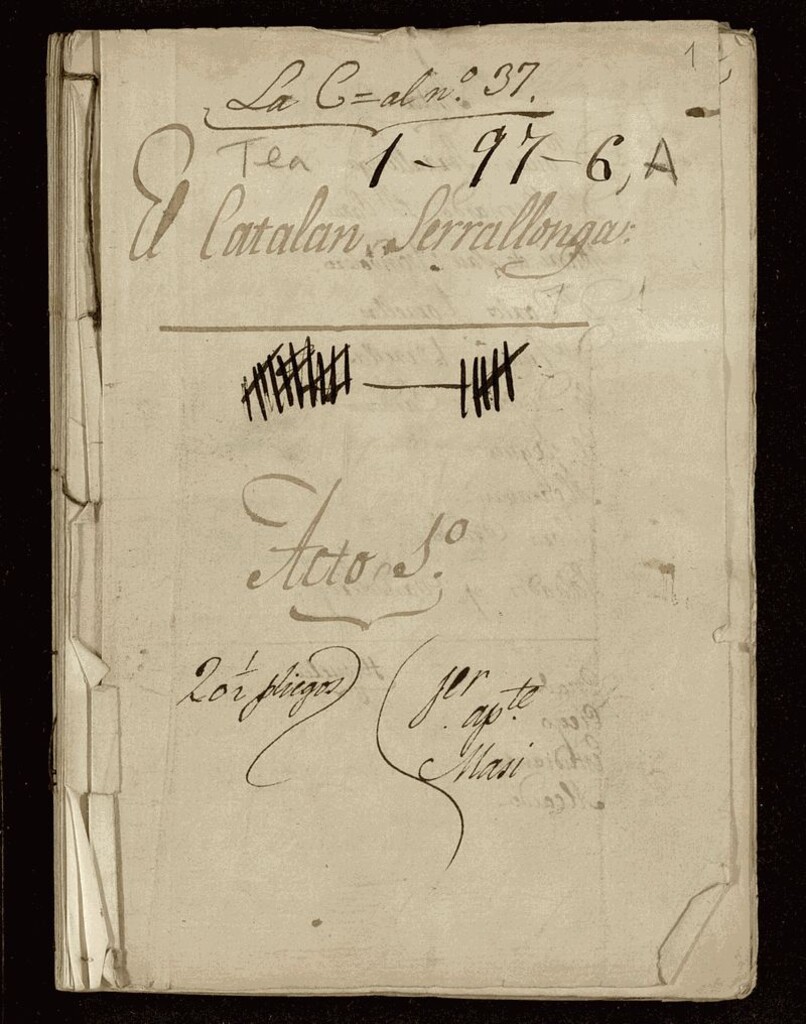 1
La C=al n.º 37.
Tea 1-97-6, A
El Catalan Serrallonga:
Acto 1.º
20½ pliegos
1er
ap.te
Masi